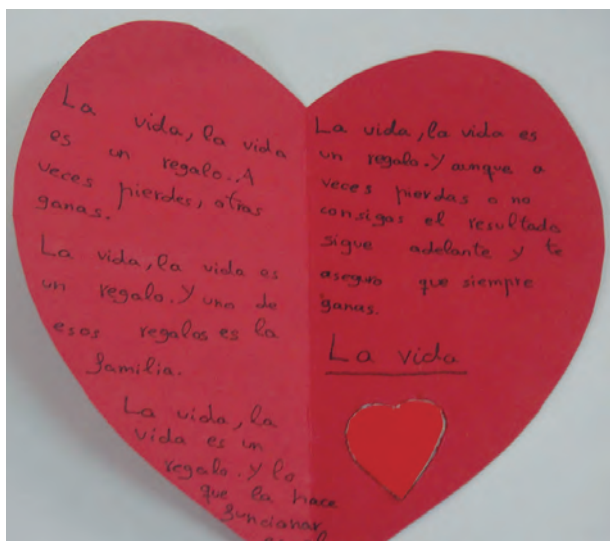 La vida, la vida
es un regalo..A
veces pierdes, otras
ganas.
La vida, la vida es
un regalo. Y uno de
esos regalos es la
familia.
La vida, la
vida es un
regalo. Y lo
que la hace
funcionar
La vida, la vida es
un regalo. Y aunque a
veces pierdas o no
consigas el resultado
sigue adelante y te
aseguro que siempre
ganas.
La vida